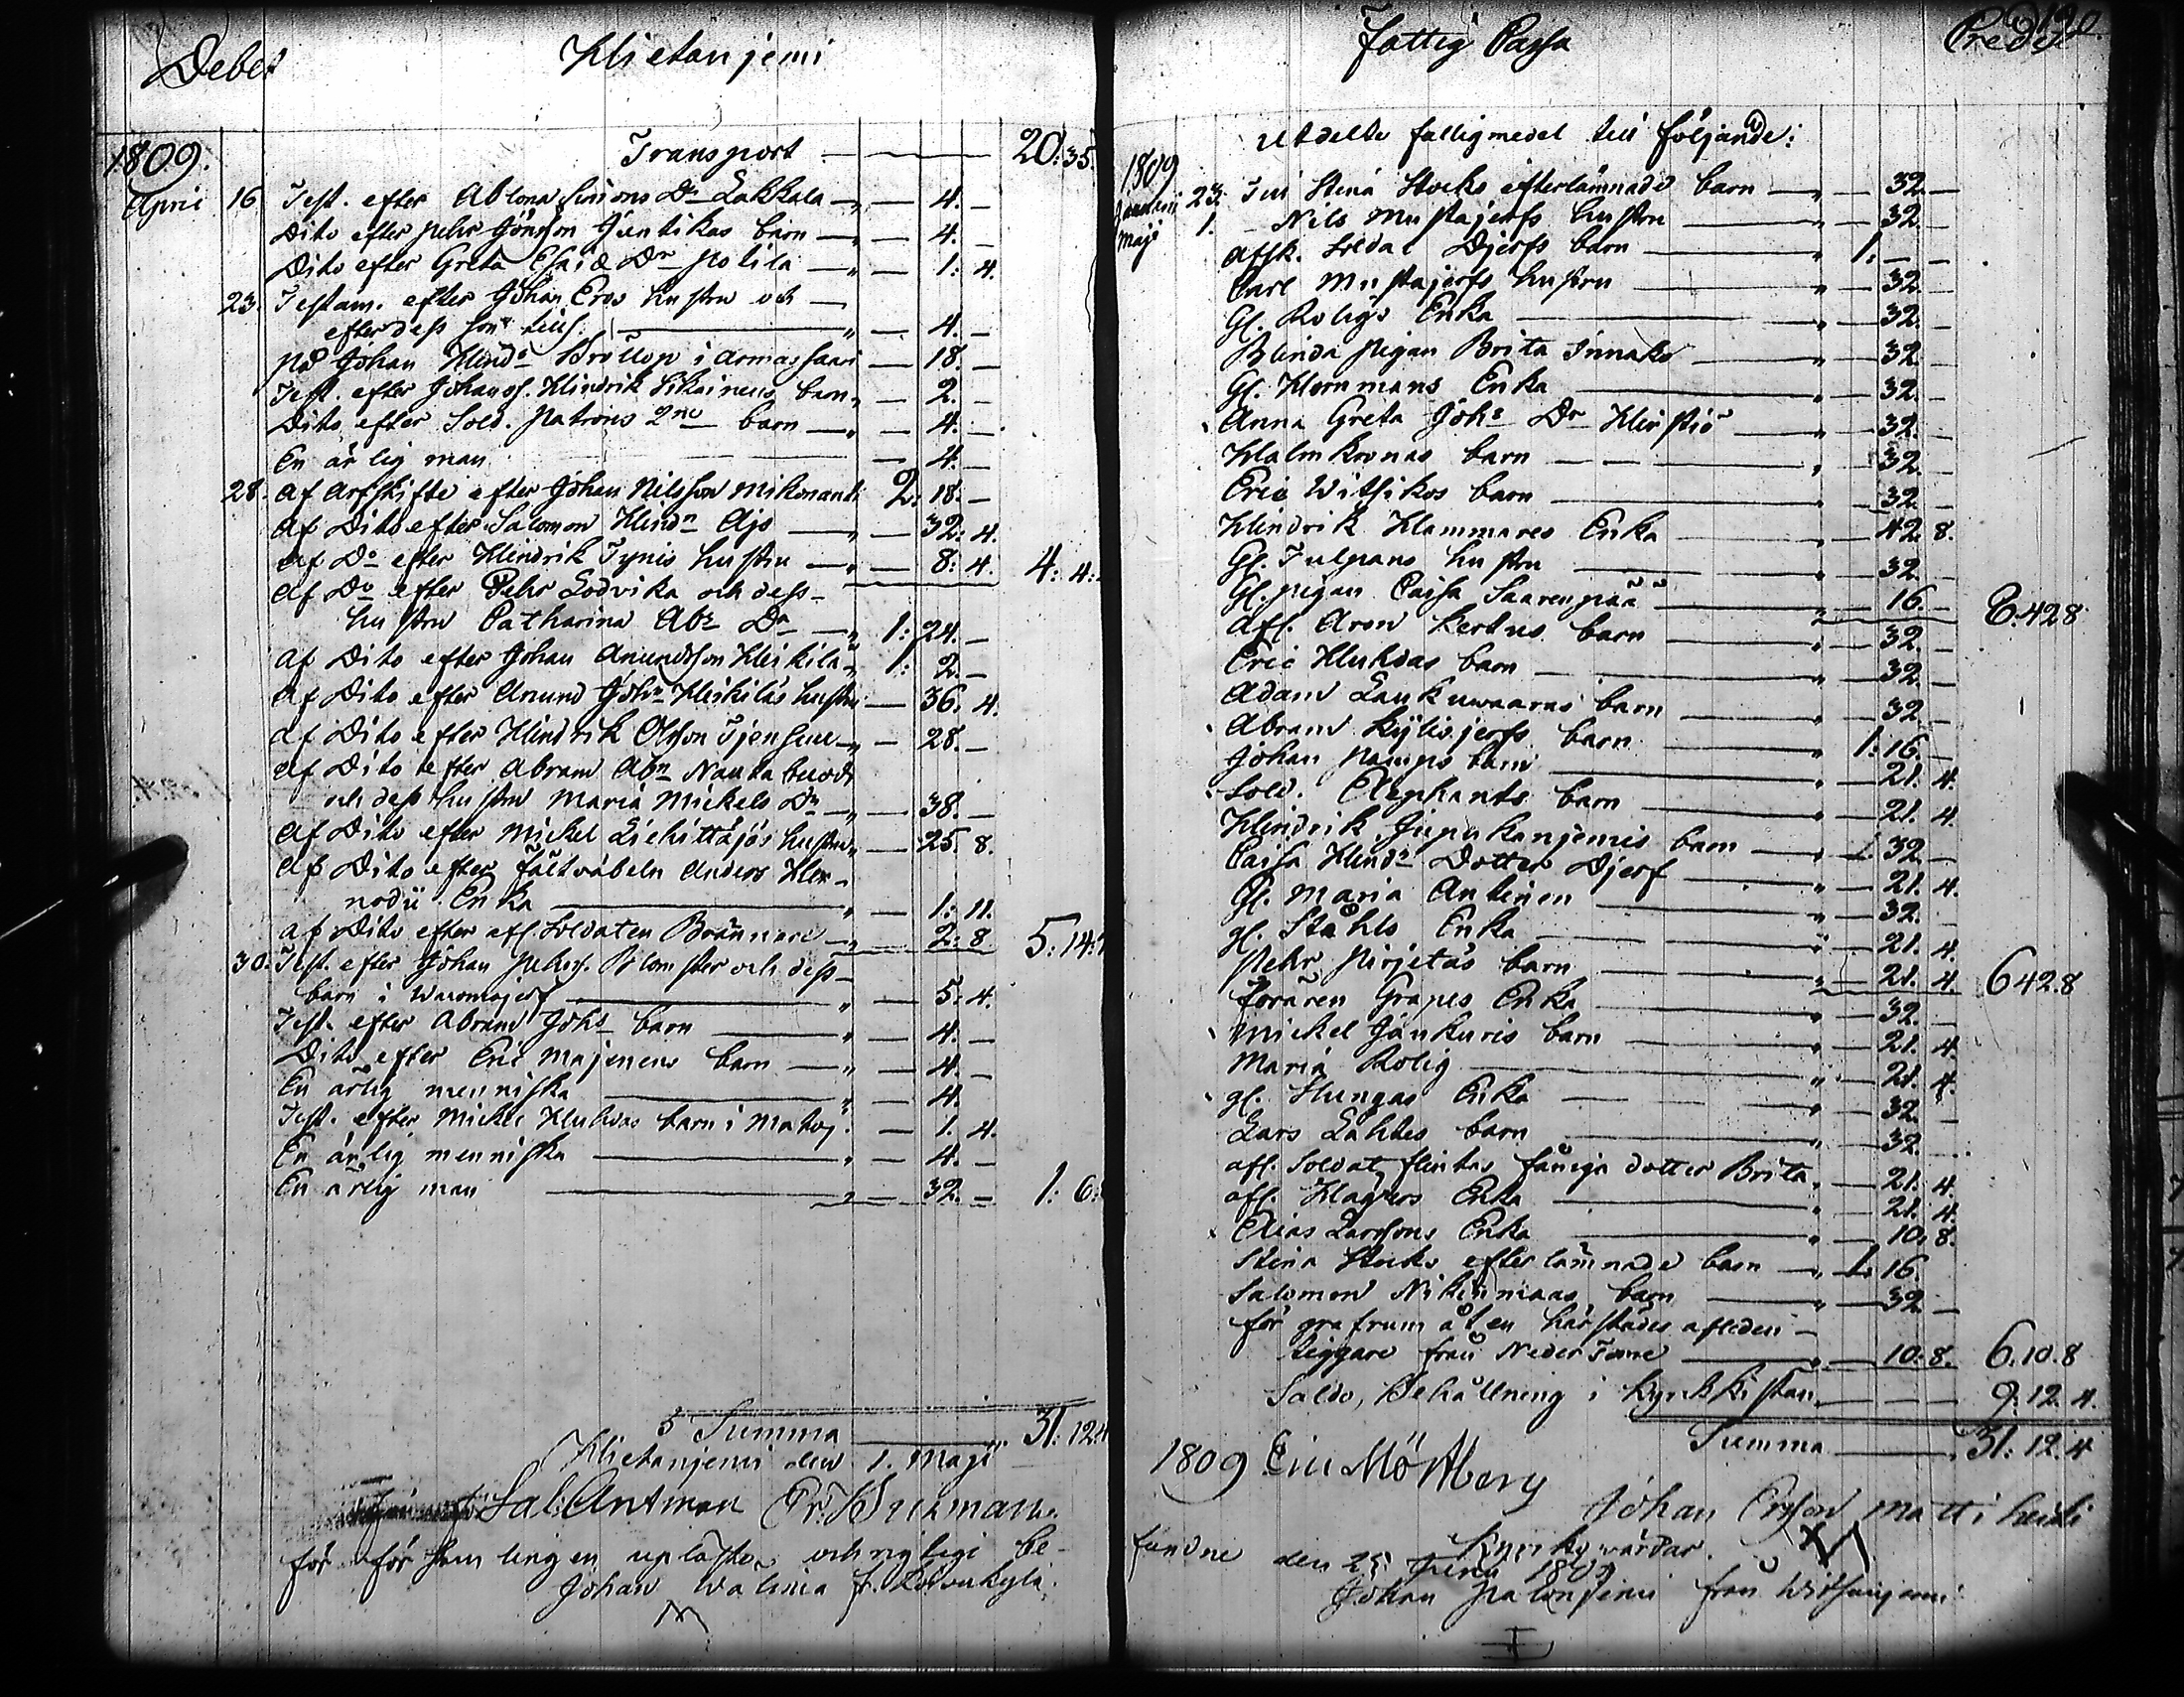 Debet Hietaniemi
1809.
Transport 20:35.
April 16 Test. efter Ablona Simons Dr Lakkala 4. –
Dito efter Pehr Jönsson Juntikas barn 4. –
Dito efter Greta Esaiæ Dr Potila 1: 4.
23. Testam. efter Johan Ers hustru och
efter dess son 4. –
på Johan Hindr Bröllop i Armassaari 18. –
Test. efter Johan Hindrik barn 2. –
Dito efter Sold. Patrons 2ne barn 4. –
En ärlig man 4. –
28. Af Arfskifte efter Johan Nilsson 2: 18. –
Af Dito efter Salomon Hindn Ajo 32: 4.
Af Do efter Hindrik Tynis hustru 8: 4. 4: 4:
Af Do efter Pehr Lodvika och dess
hustru Catharina Abr Dr 1: 24. –
Af Dito efter Johan Anundsson Heikilä 1: 2. –
Af Dito efter Anund Johns Heikiläs hustru 36. 4.
Af Dito efter Hindrik Olsson 28. –
Af Dito efter Abram Abrn Nauta
och dess hustru Maria Mickels Dr 38. –
Af Dito efter Mickel Liehittäjäs hustru 25. 8.
Af Dito efter Fältväbeln Anders
Enka 1: 11.
Af Dito efter afl. Soldaten Brännare 2: 8 5: 14:
30. Test. efter Johan Blomster och dess
barn i 5: 4.
Test. efter Abram Johs barn 4. –
Dito efter Eric Majenens barn 4. –
En ärlig menniska 4.
Test. efter Mickel Huhtas barn i 1. 4.
En ärlig menniska 4. –
En ärlig man 32. – 1: 6:
Summa 31: 12.4
Hietaniemi den 1. Maji
Sal: Antman
för församlingen upläste och rigtige be-
Johan
Fattig Cassa Credit
1809 Utdelte fattigmedel till följande:
23. Till Stina Stocks efterlämnade barn 32. –
Maji 1. Nils Mustajerfs hustru 32. –
Afsk. Soldat Djerfs barn 1: – –
Carl Mustajerfs hustru 32. –
Gl. Roligs Enka 32. –
Blinda pigan Brita 32. –
Gl. Hornmans Enka 32. –
Anna Greta Johs Dr 32. –
Halmkronas barn 32.
Eric Witsikos barn 32. –
Hindrik Hammares Enka 42. 8.
Gl. Tulpans hustru 32. –
Gl. pigan Caisa Saarenpää 16. – 8.42.8
Afl. Aron Kertus barn 32. –
Eric Huhtas barn 32. –
Adam barn 32
Abram Kylisjerfs barn 1: 16. –
Johan barn 21. 4.
Sold. Elephants barn 21. 4.
Hindrik barn 1. 32. –
Caisa Hindr Dotter Djerf 21. 4.
Gl. Maria Antinen 32.
gl. Ståhls Enka 21. 4.
Pehr Pirjetäs barn 21. 4. 6 42.8
Foraren Grapes Enka 32. –
Mickel Jankuris barn 21. 4.
Maria Rolig 21. 4.
gl. Enka 32. –
Lars Lahtes barn 32.
afl. Soldat Flintas dotter Brita 21. 4.
afl. Enka 21. 4.
Elias Larssons Enka 10. 8.
Stina Stocks efterlämnade barn 1. 16.
Salomon barn 32. –
för grafrum åt en härstädes afleden
tiggare från Neder Torne 10. 8. 6. 10. 8
Saldo, Behållning i Kyrkkistan 9. 12. 4.
Summa 31: 12. 4
1809 Eric Mörtberg
Johan Ersson Matti
Kyrkowärdar.
fundne den 25 1809
Johan från